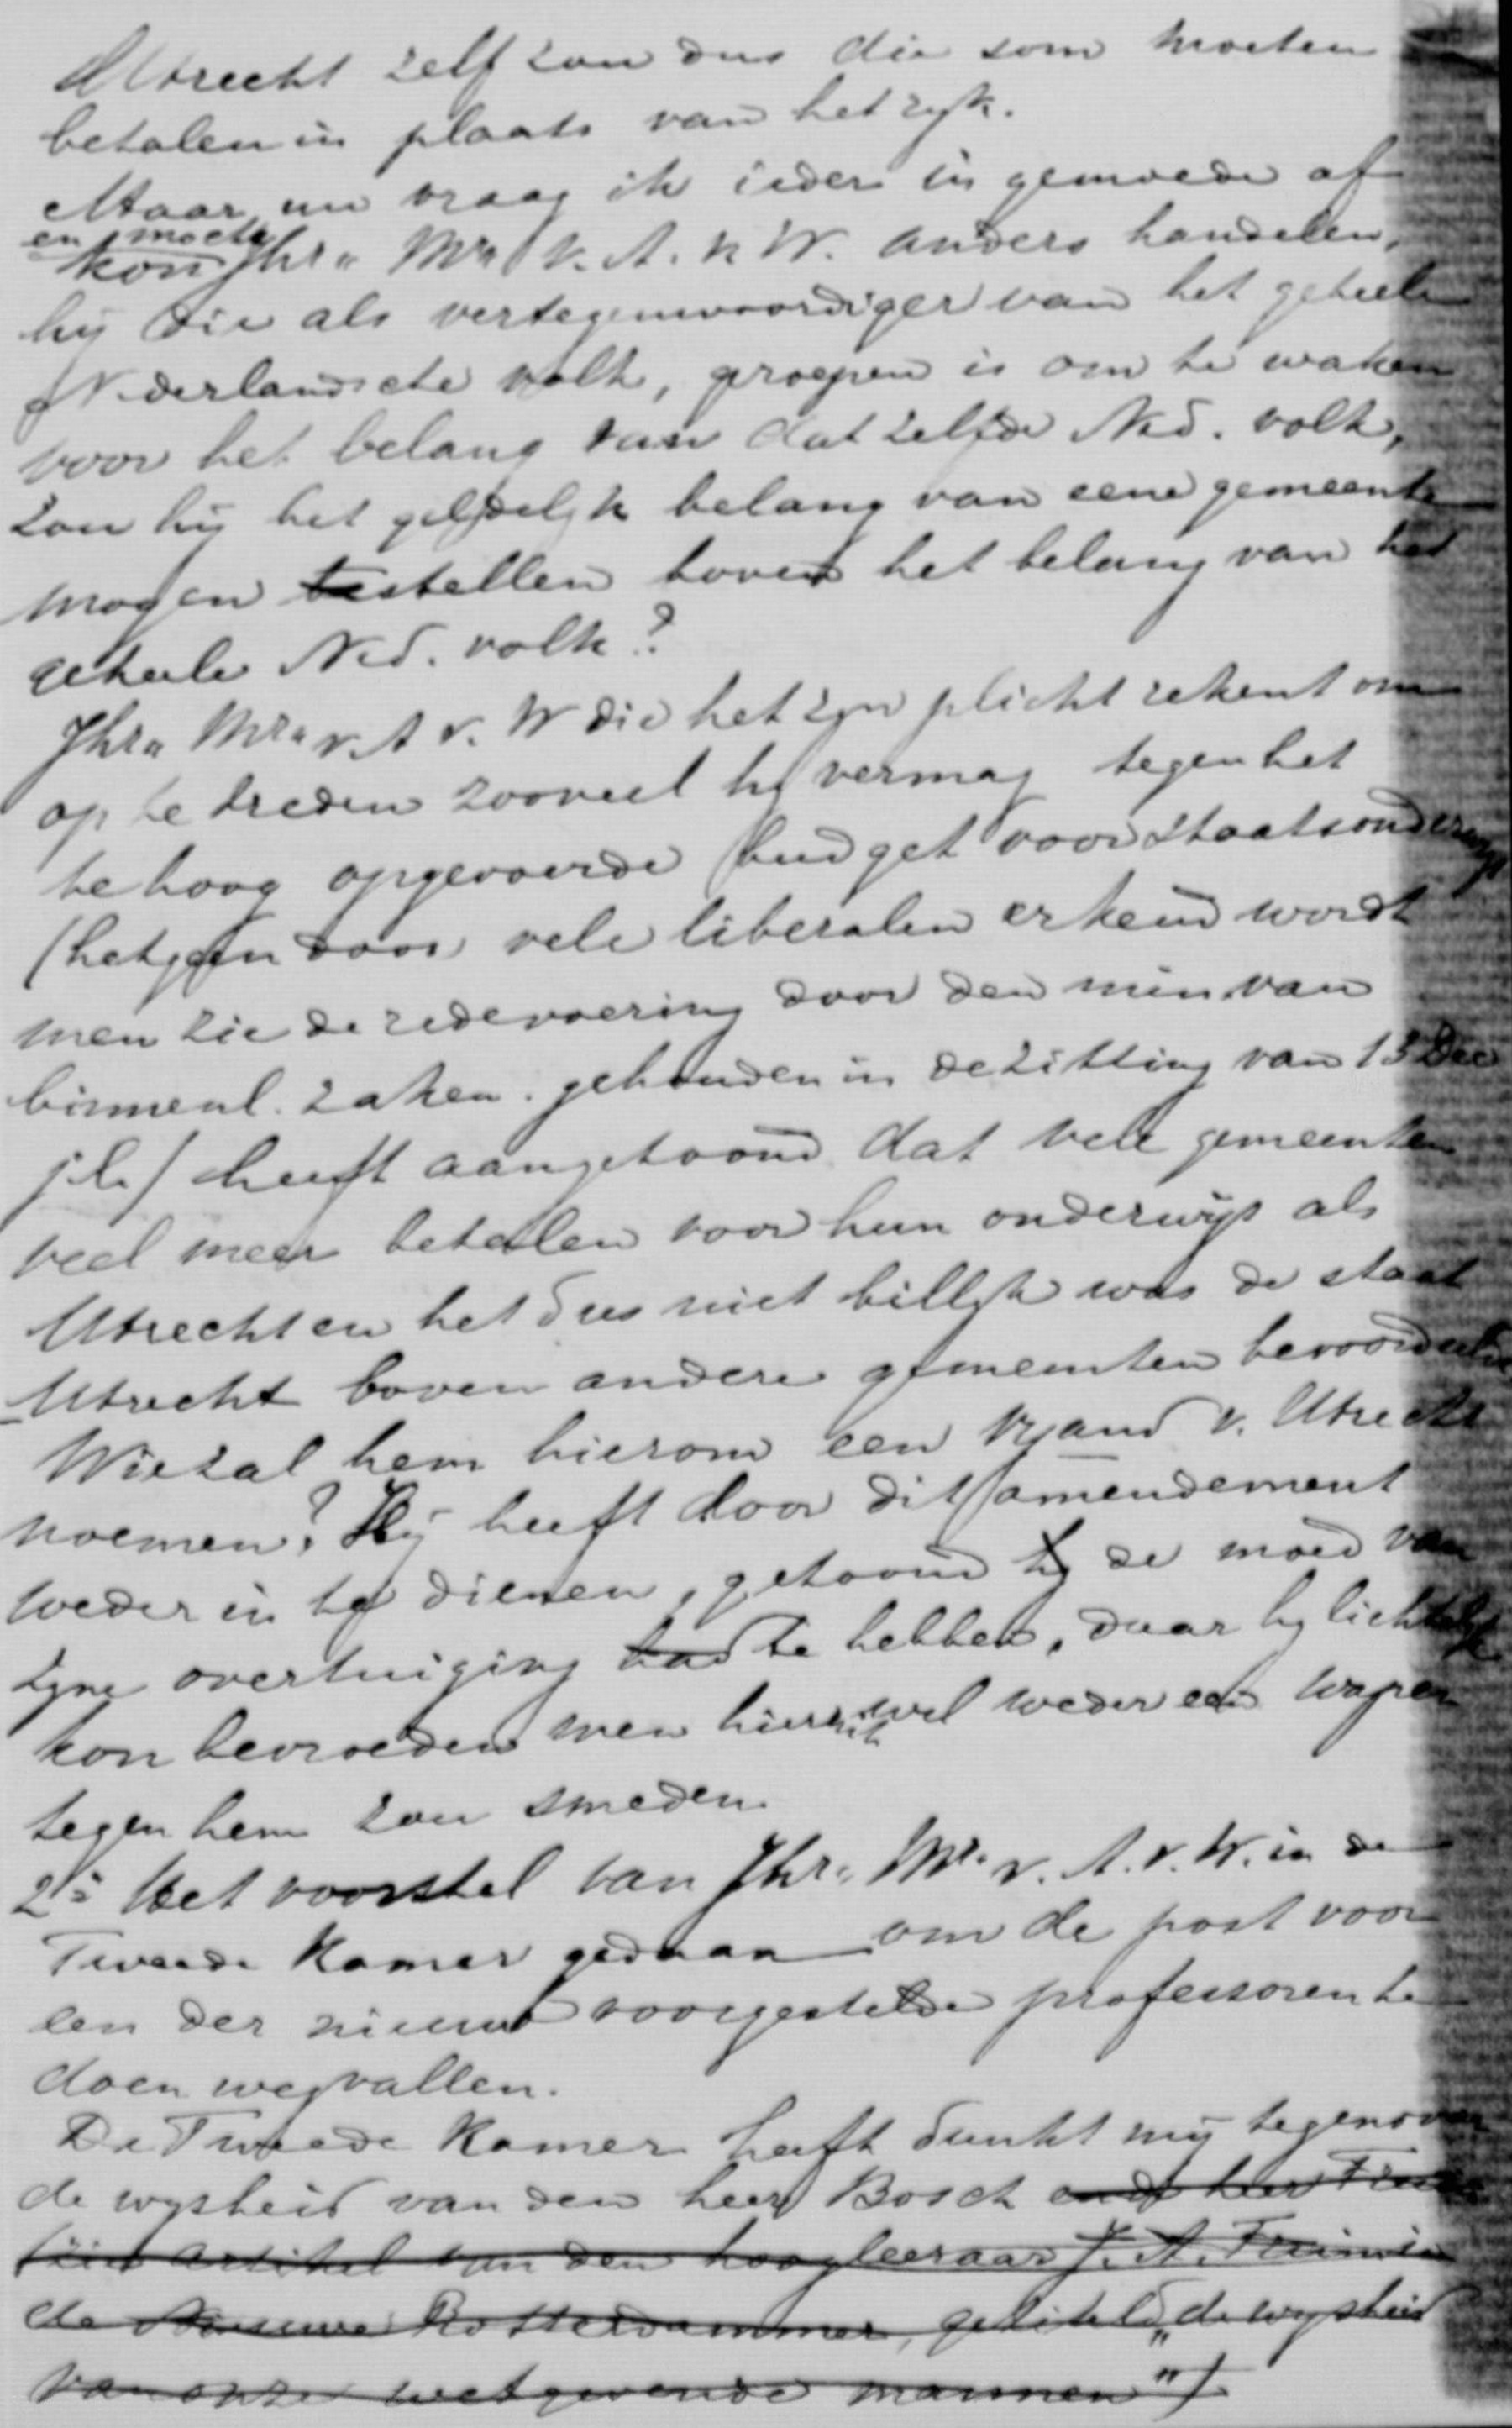 Utrecht zelf zou dus die som moeten
betalen in plaats van het ryk.
Maar nu vraag ik ieder in gemoede af
en mocht
kon Jhr. Mr. v. A. v. W. anders handelen,
hij die als vertegenwoordiger van het geheele
Nederlandsche volk, geroepen is om te waken
voor het belang van dat zelfde Ned. volk,
zou hij het geldelyk belang van eene gemeente
mogen te stellen boven het belang van het
geheele Ned. volk?
Jhr. Mr. v. A v. W die het zyn plicht rekent om
op te treden zooveel hy vermag tegen het
te hoog opgevoerde budget voor staatsonderwys
(hetgeen door vele liberalen erkend wordt
men zie de redevoering door den min. van
binnenl. zaken. gehouden in de zitting van 13 Dec
jl.) heeft aangetoond dat vele gemeenten
veel meer betalen voor hun onderwijs als
Utrecht en het dus niet billyk was de staat
Utrecht boven andere gemeenten bevoordeelen
Wie zal hem hierom een vyand v. Utrecht
noemen? Hij heeft door dit amendement
weder in te dienen, getoond hy de moed van
zyne overtuiging had te hebben, daar hy lichtelyk
kon bevroeden men hieruit wel weder een wapen
tegen hem zou smeden.
2º Het voorstel van Jhr. Mr. v. A. v. W. in de
Tweede Kamer gedaan om de post voor
een der nieuw voorgestelde professoren te
doen wegvallen.
De Tweede Kamer heeft dunkt mij tegenover
de wysheid van den heer Bosch en de heer
artikel van den hoogleeraar J. A. Fruin in
de Nieuwe Rotterdammer, getiteld „de wysheid
van onze wetgevende mannen")